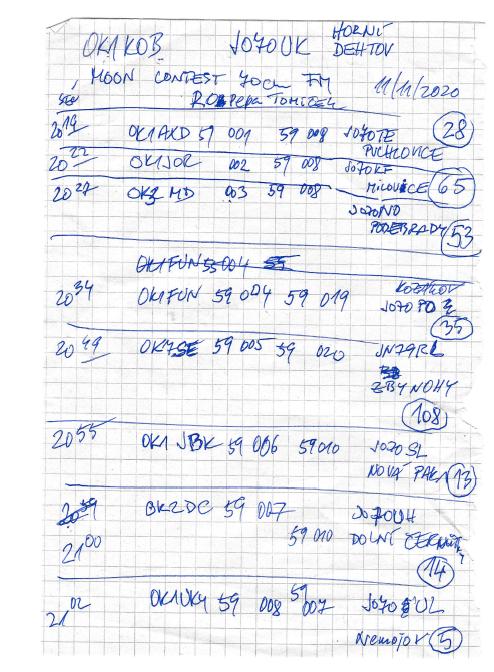 OK1KOB JO70UK HORNÍ
DEHTOV
MOON CONTEST 70cm FM 11/11/2020
PEPA TOMÍZEK
20 19 OK1AXD 59 001 59 008 JO70TE 28
PUCHLOVICE
20 22 OK1JOR 002 59 008 JO70KF
MILOVICE 65
20 27 OK2MD 003 59 008
JO70NO
PODEBRADY 53
OK1FUN 55 004 55
KOZÁKOV
20 34 OK1FUN 59 004 59 019 JO70PO
35
20 49 OK7SE 59 005 59 020 JN79RL
ZBYNOHY
108
20 55 OK1JBK 59 006 59 010 JO70SL
NOVÁ PAKA 13
20 59 OK2DC 59 007 JO70UH
21 00 59 010 DOLNÍ
14
21 02 OK1UKY 59 008 59 007 JO70UL
Nemojov 5